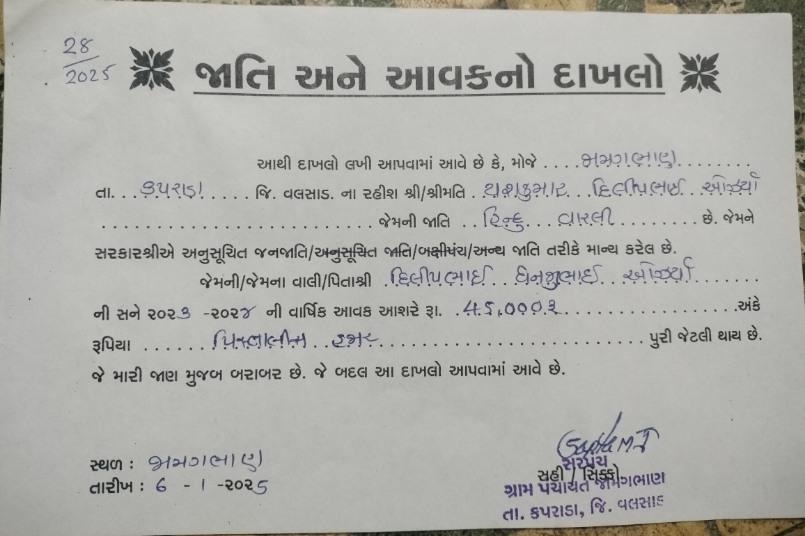 28
2025
જાતિ અને આવકનો દાખલો
આથી દાખલો લખી આપવામાં આવે છે કે, મોજે ....જામગભાણ........
તા. કપરાડા..... જિ. વલસાડ. ના રહીશ શ્રી/શ્રીમતિ . યશકુમાર. દિલીપભાઈ. ઓઝર્યા
.................................. જેમની જાતિ ..હિન્દુ ..વારલી............ છે. જેમને
સરકારશ્રીએ અનુસૂચિત જનજાતિ/અનુસૂચિત જાતિ/બક્ષીપંચ/અન્ય જાતિ તરીકે માન્ય કરેલ છે.
જેમની/જેમના વાલી/પિતાશ્રી .દિલીપભાઈ. ..ઓઝર્યા........
ની સને ૨૦૨૩ -૨૦૨૪ ની વાર્ષિક આવક આશરે રૂા. .45,000રૂ.................અંકે
રૂપિયા ......પિસ્તાલીસ ..હજાર........................... પુરી જેટલી થાય છે.
જે મારી જાણ મુજબ બરાબર છે. જે બદલ આ દાખલો આપવામાં આવે છે.
સ્થળ : જામગભાણ
તારીખ : 6 - 1 -૨૦૨5
સરપંચ
સહી / સિક્કો
ગ્રામ પંચાયત જામગભાણ
તા. કપરાડા, જિ. વલસાડ